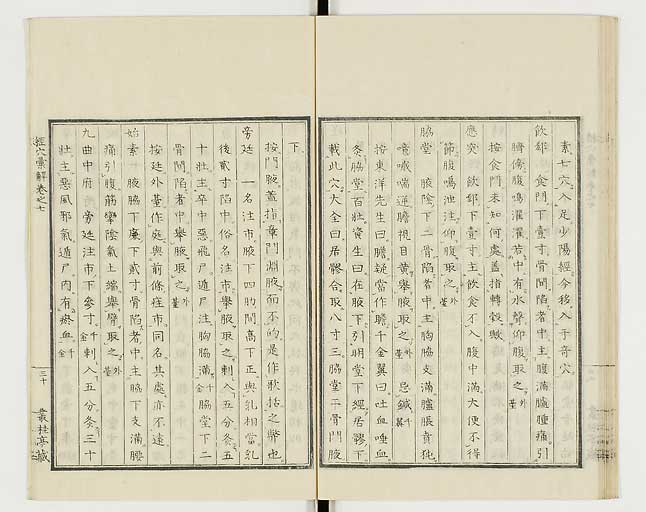 素七穴入足少陽經今移入于奇穴
飲郄 食門下壹寸骨間陷者中主腹滿臚腫痛引
臍傍腹鳴濯濯若中有水聲仰腹取之 外臺
按食門未知何處蓋指轉穀歟
應突 飲郄下壹寸主飲食不入腹中滿大便不得
節腹鳴泄注仰腹取之 外臺
脇堂 腋陰下二骨陷者中主胸脇支滿臚脹賁㹠
噫噦喘逆瞻視目黃舉腋取之 外臺 忌鍼 千翼
按東洋先生曰瞻疑當作瞻千金翼曰吐血唾血
灸脇堂百壯資生曰在腋下引明堂下經居髎下
載此穴大全曰居髎合取八寸三脇堂二骨間腋
下
按門腋蓋指章門淵腋而不的是作歌括之弊也
旁廷 一名注市腋下四肋間高下正與乳相當乳
後貳寸陷中俗名注市舉腋取之刺入五分灸五
十壯主卒中惡飛尸遁尸注胸脇滿 千金 脇堂下二
骨間陷者中舉腋取之 外臺
按廷外臺作庭與前條疰市同名其處亦不遠
始素 腋脇下廉下貳寸骨陷者中主脇下支滿腰
痛引腹筋攣陰氣上縮舉臂取之 外臺
九曲中府 旁廷注市下參寸 千金 刺入五分灸三十
壯主惡風邪氣遁尸內有瘀血 千金
經穴彙解卷之七
三十
叢桂亭藏